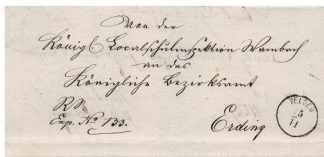 Von der
Königl. Localschulinspektion Wambach
an das
Königliche Bezirksamt
R.S.
Exp. No 133.
Erding
VELDEN
5
11